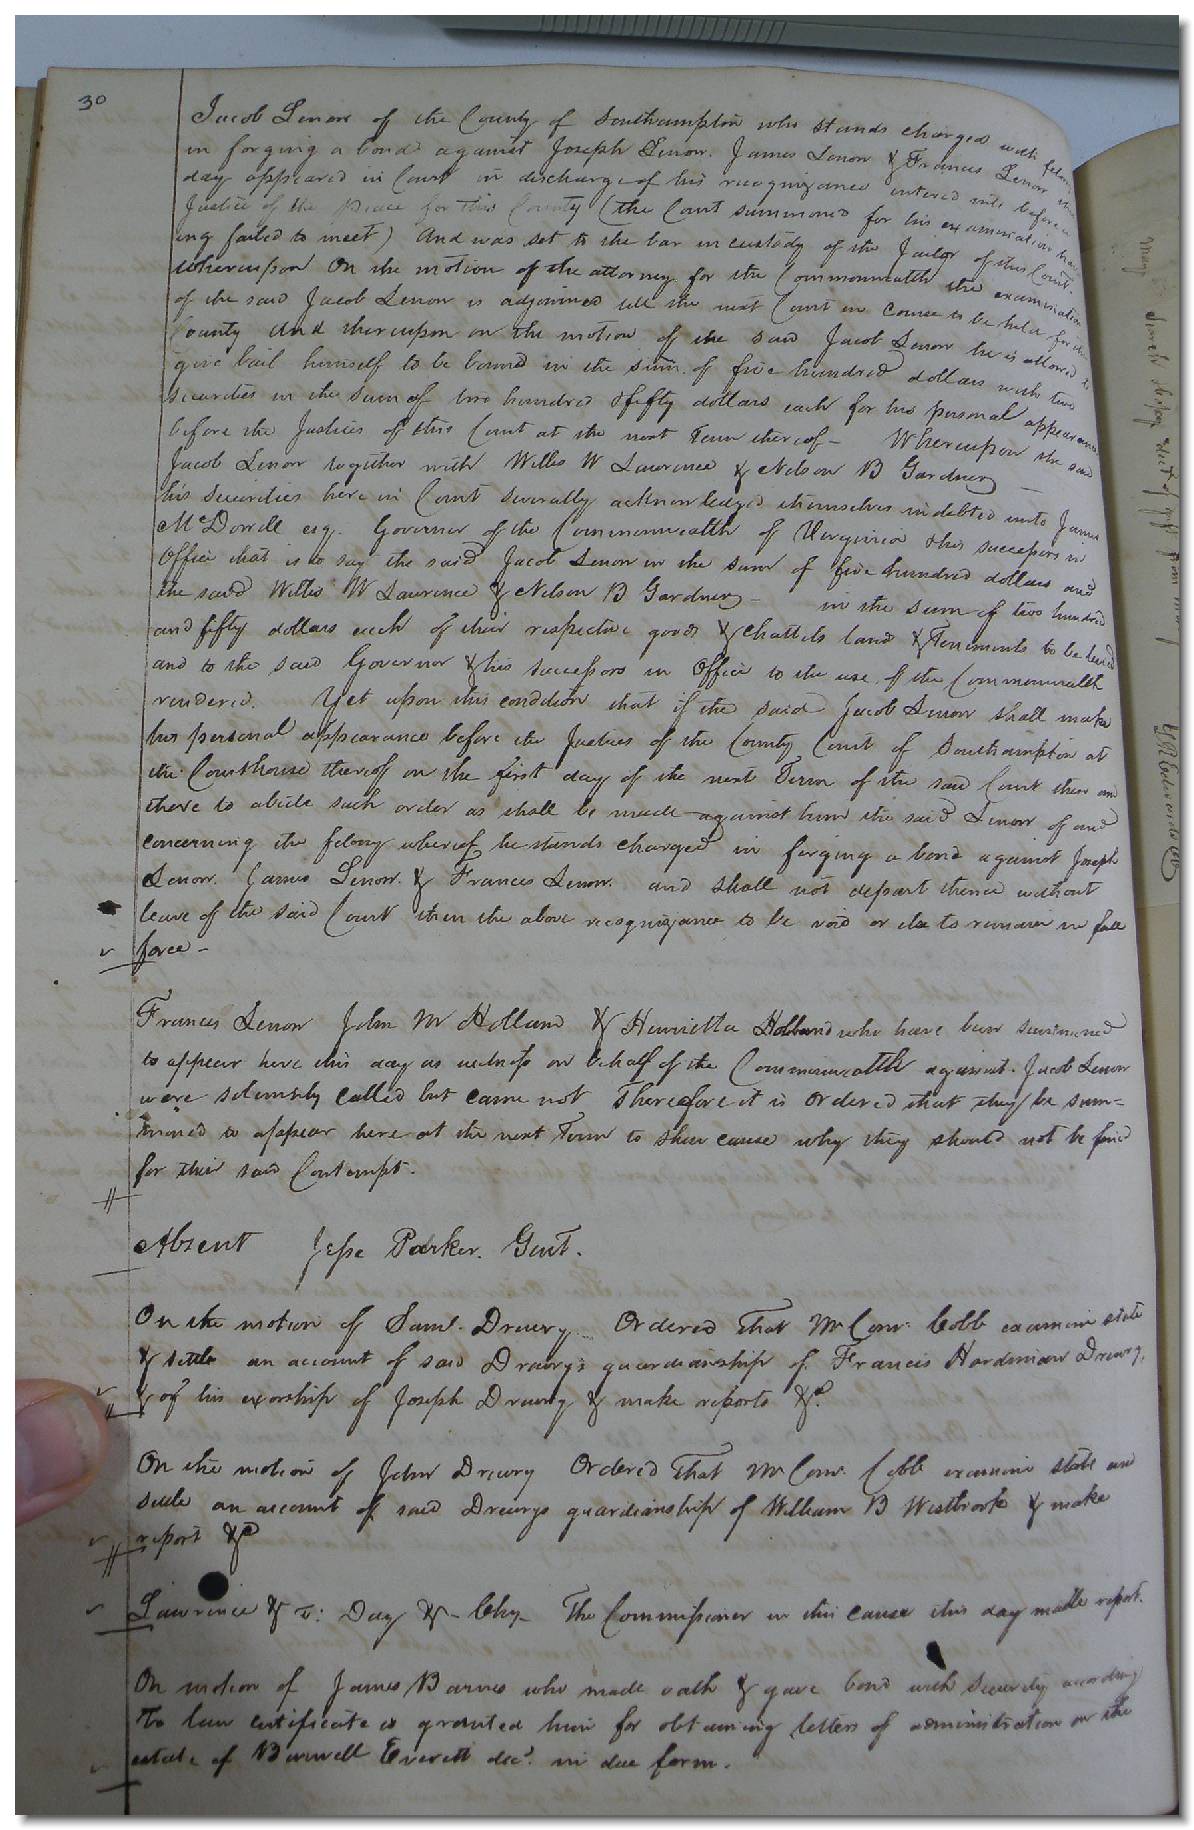 30
Jacob Lenow of the County of Southampton who stands charged with felony
in forging a bond against Joseph Lenow. James Lenow & Frances Lenow this
day appeared in Court in discharge of his recognizance entered into before a
Justice of the Peace for this County (the Court summoned for his examination hav-
ing failed to meet) And was set to the bar in custody of the Jailor of this Court.
Whereupon On the motion of the attorney for the Commonwealth the examination
of the said Jacob Lenow is adjourned till the next Court in course to be held for this
County And thereupon on the motion of the said Jacob Lenow he is allowed to
give bail himself to be bound in the sum of five hundred dollars with two
securities in the sum of two hundred & fifty dollars each for his personal appearance
before the Justices of this Court at the next Term thereof - Whereupon the said
Jacob Lenow together with Willis W Lawrence & Nelson B Gardner
his securities here in Court severally acknowledged themselves indebted unto James
McDowell esq. Governor of the Commonwealth of Virginia & his successors in
Office that is to say the said Jacob Lenow in the sum of five hundred dollars and
the said Willis W Lawrence & Nelson B Gardner - in the sum of two hundred
and fifty dollars each of their respective goods & chattels land & Tenements to be levied
and to the said Governor & his successors in Office to the use of the Commonwealth
rendered. Yet upon this condition that if the said Jacob Lenow shall make
his personal appearance before the Justices of the County Court of Southampton at
the Courthouse thereof on the first day of the next Term of the said Court then and
there to abide such order as shall be made against him the said Lenow of and
concerning the felony whereof he stands charged in forging a bond against Joseph
Lenow. James Lenow. & Frances Lenow. and shall not depart thence without
leave of the said Court then the above recognizance to be void or else to remain in full
force -
Frances Lenow John M Holland & Henrietta Holland who have been summoned
to appear here this day as witness on behalf of the Commonwealth against Jacob Lenow
were solemnly called but came not Therefore it is Ordered that they be sum-
moned to appear here at the next Term to shew cause why they should not be fined
for their said Contempt.
Absent Jesse Parker. Gent.
On the motion of Saml. Drewry Ordered That Mr Comr. Cobb examine state
& settle an account of said Drewry's guardianship of Francis Hardiman Drewry,
& of his exorship of Joseph Drewry & make reports &c.
On the motion of John Drewry Ordered That Mr Comr. Cobb examine state and
settle an account of said Drewrys guardianship of William B Westbrook & make
report &c
Lawrence & v: Day & - Chy - The Commissioner in this cause this day made report.
On motion of James Barnes who made oath & gave bond with security according
to law certificate is granted him for obtaining letters of administration on the
estate of Burwell Everett decd. in due form.